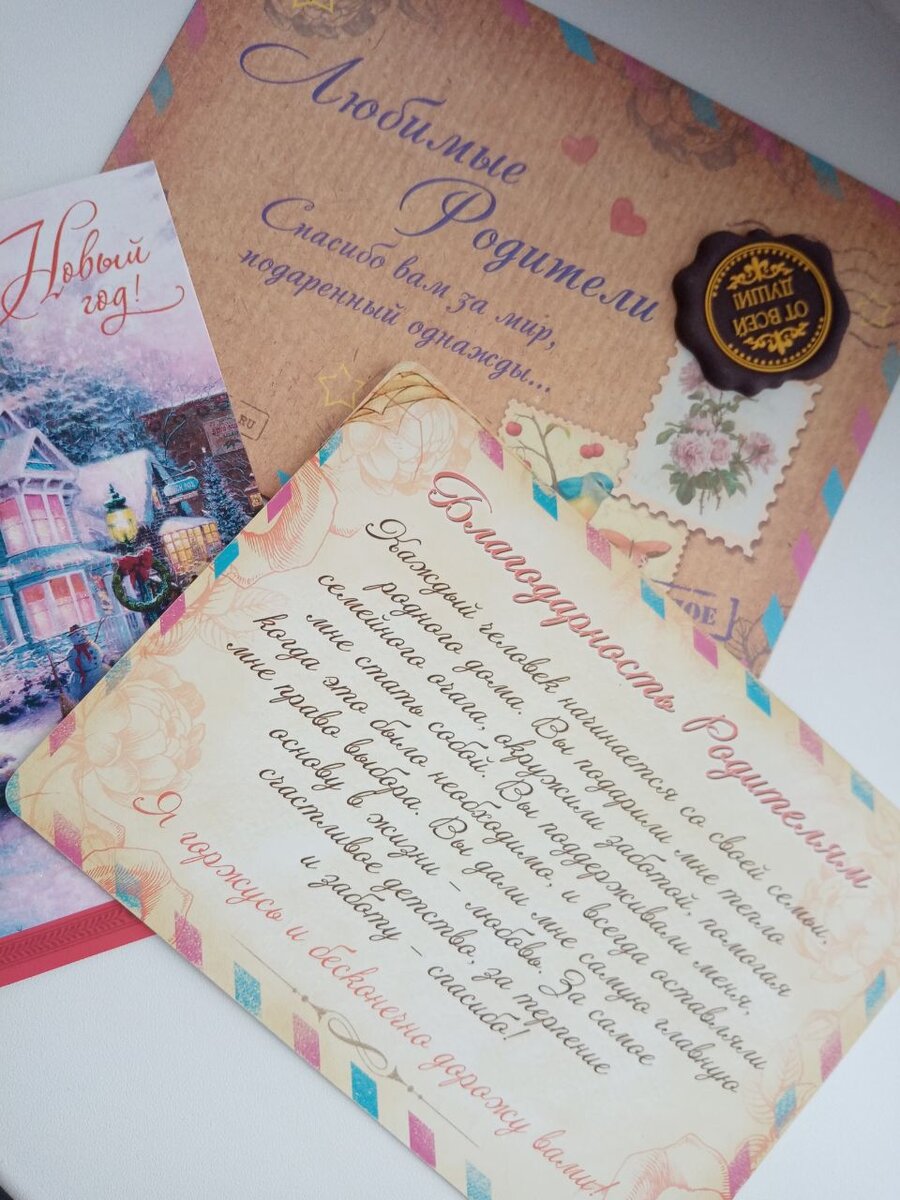 Любимые
Родители
Спасибо вам за мир,
подаренный однажды...
ОТ ВСЕЙ
ДУШИ!
Новый
год!
RU
Благодарность Родителям
Каждый человек начинается со своей семьи,
родного дома. Вы подарили мне тепло
семейного очага, окружили заботой, помогая
мне стать собой. Вы поддерживали меня,
когда это было необходимо, и всегда оставляли
мне право выбора. Вы дали мне самую главную
основу в жизни – любовь. За самое
счастливое детство, за терпение
и заботу – спасибо!
Я горжусь и бесконечно дорожу вами!